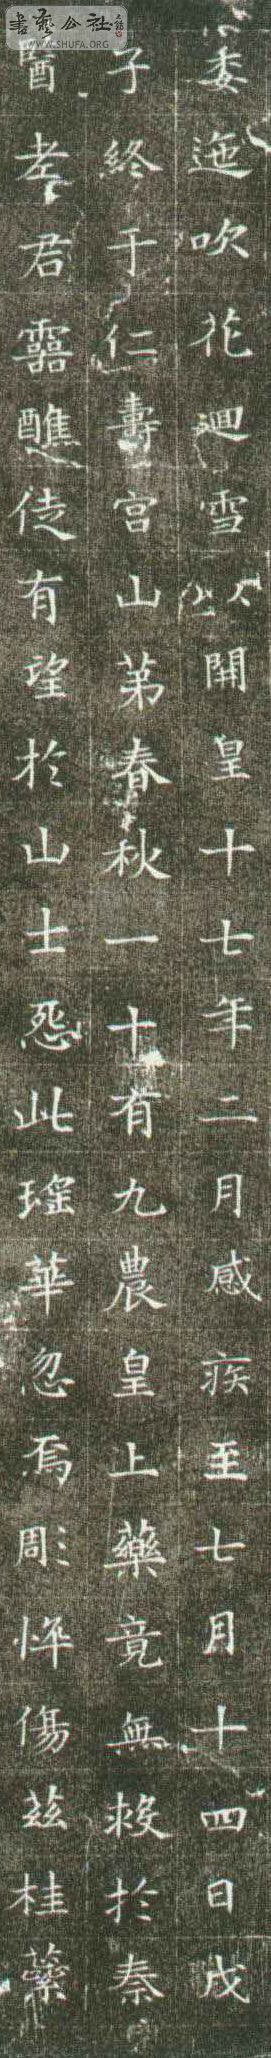 書藝公社
WWW.SHUFA.ORG
委迤吹花迴雪以開皇十七年二月感疾至七月十四日戊
子終于仁壽宮山第春秋一十有九農皇上藥竟無救於秦
醫老君靈醮徒有望於山士怨此瑤華忽焉彫悴傷茲桂蘂